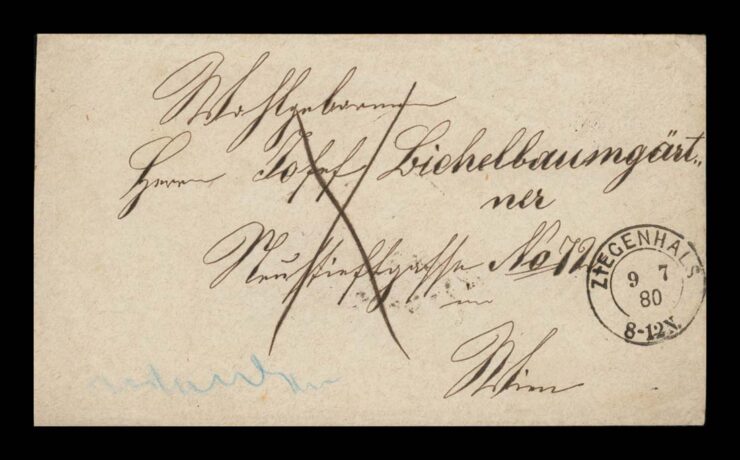 Wohlgeboren
Herrn Josef Eichelbaumgärt„
ner
Neustiftgasse No 72
in
Wien
ZIEGENHALS
9 7
80
8-12N.